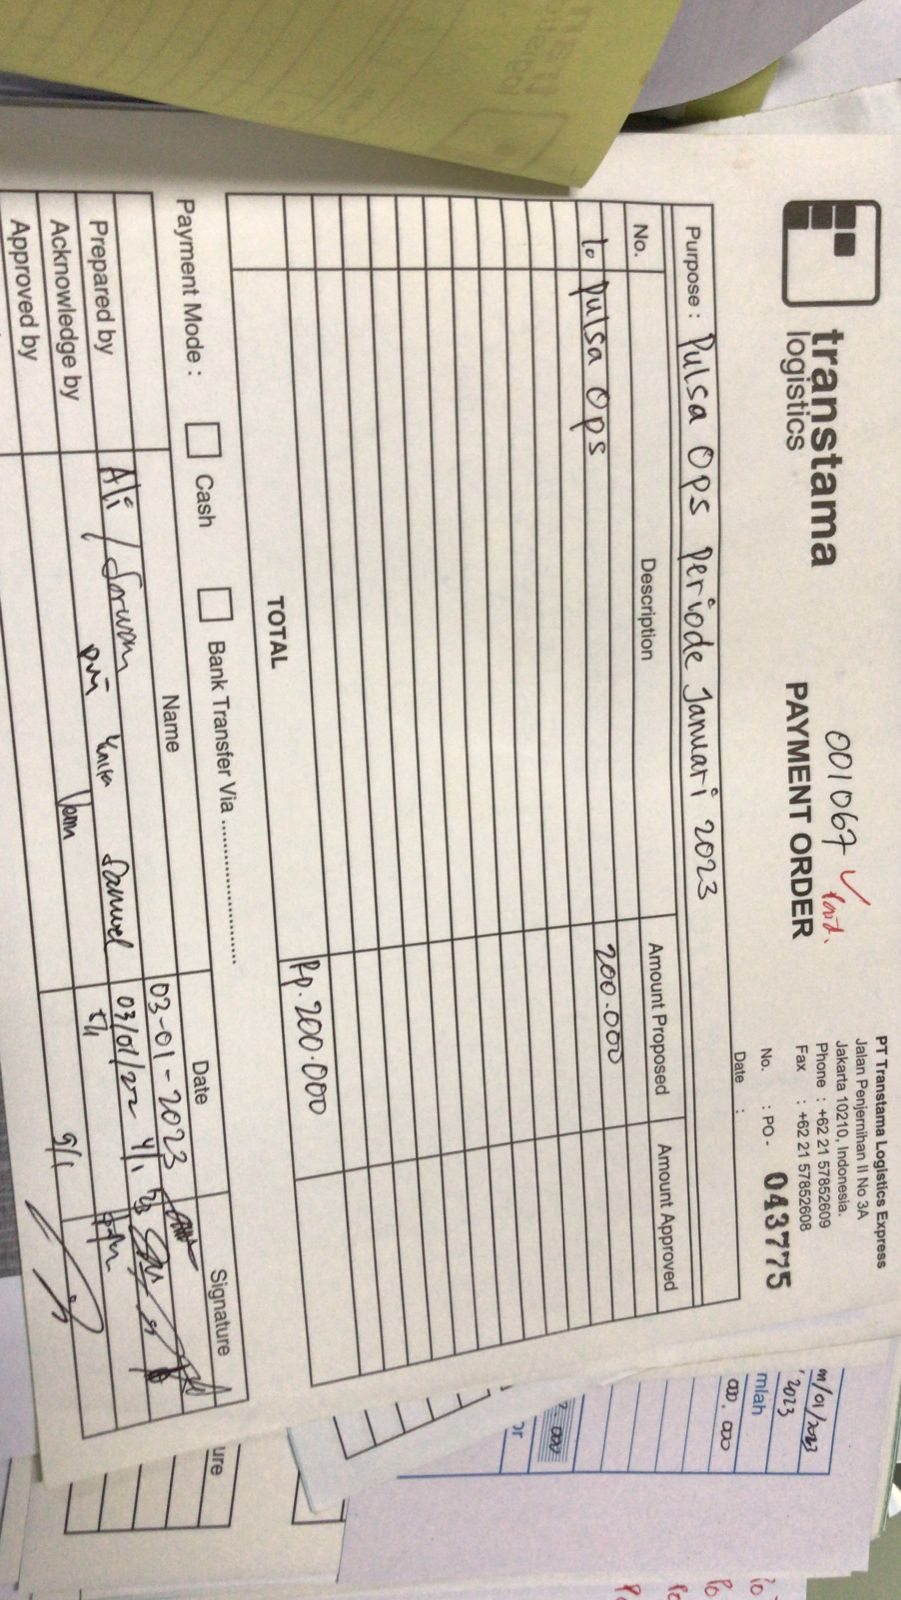 transtama
logistics
001067 ✓ Paid.
PAYMENT ORDER
PT Transtama Logistics Express
Jalan Penjernihan II No 3A
Jakarta 10210, Indonesia.
Phone : +62 21 57852609
Fax : +62 21 57852608
No. : PO - 043775
Date :
Purpose : Pulsa Ops Periode Januari 2023
No. Description Amount Proposed Amount Approved
Pulsa Ops 200.000
TOTAL Rp. 200.000
Payment Mode : Cash Bank Transfer Via ......................
Name Date Signature
Prepared by Ali 03-01-2023
Samuel 03/01/22 4/1
Acknowledge by
Approved by 9/1
/01/2023
2023
mlah
000.000
or
ure